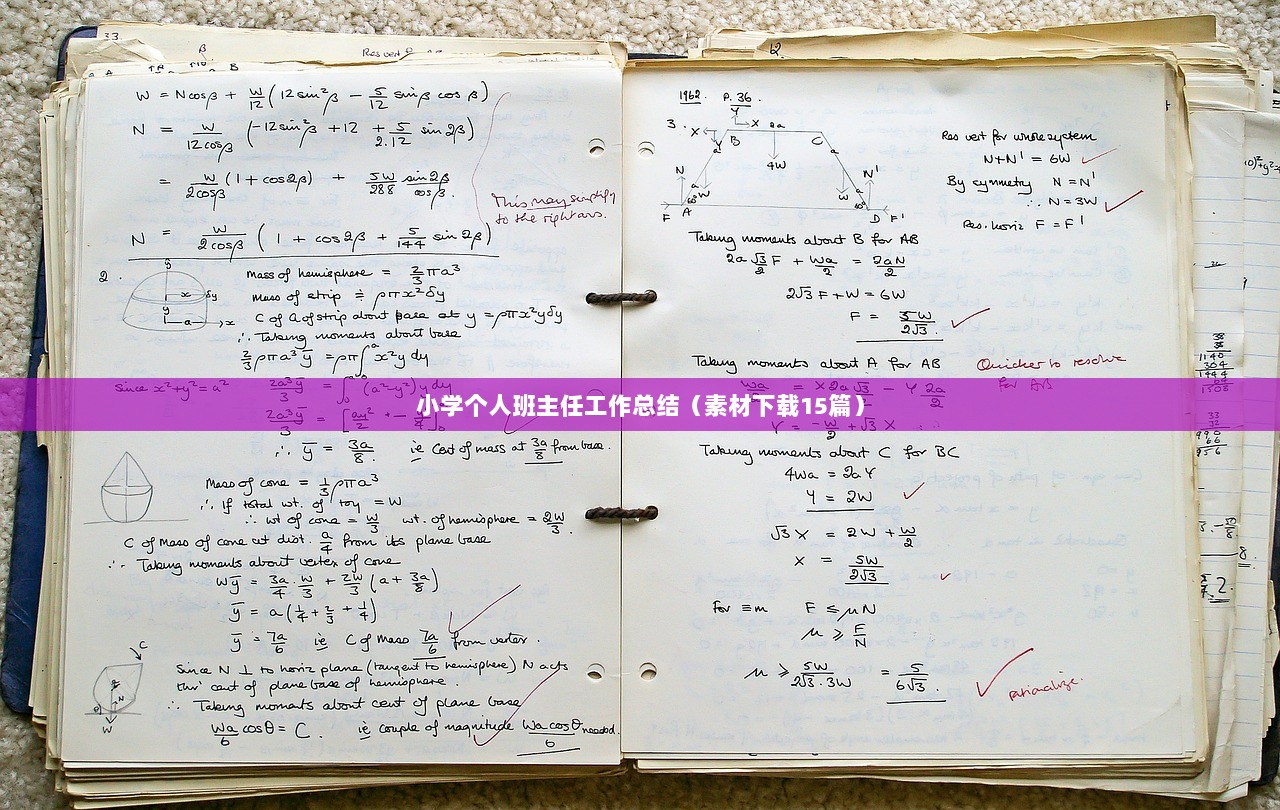 33.
Res vert
W = N cos β + W/12 (12 sin²β − 5/12 sin β cos β)
N = W/12 cos β (−12 sin²β + 12 + 5/2.12 sin 2β)
= W/2cosβ (1 + cos 2β) + 5W/288 sin 2β/cos β.
This may simplify
to the right ans.
N = W/2cosβ (1 + cos 2β + 5/144 sin 2β)
2.
Mass of hemisphere = 2/3 πa³
mass of strip ≑ ρπx²δy
C of G of strip about base at y = ρπx²yδy
∴ Taking moments about base
2/3 ρπa³ȳ = ρπ∫x²y dy
Since x²+y²=a² 2a³ȳ/3 = ∫₀ (a²−y²) y dy
小学个人班主任工作总结（素材下载15篇）
∴ ȳ = 3a/8. ie Cent of mass at 3a/8 from base.
Mass of cone = 1/3 ρπa³
∴ If total wt. of toy = W
∴ wt of cone = W/3 wt. of hemisphere = 2W/3.
C of Mass of cone at dist. a/4 from its plane base
∴ Taking moments about vertex of cone
Wȳ = 3a/4 . W/3 + 2W/3 (a + 3a/8)
ȳ = a(1/4 + 2/3 + 1/4)
ȳ = 7a/6 ie C of Mass 7a/6 from vertex.
Since N ⊥ to horiz plane (tangent to hemisphere) N acts
thro' cent of plane base of hemisphere.
∴ Taking moments about cent of plane base
Wa/6 cos θ = C. ie couple of magnitude Wa cos θ/6 needed.
1962. P. 36.
3.
X Y X 2a
B C
4W
N N'
W W
F A D F'
Res vert for whole system
N+N' = 6W
By symmetry N = N'
∴ N = 3W
Res. horiz F = F'
Taking moments about B for AB
2a √3/2 F + Wa/2 = 2aN/2
2√3 F + W = 6W
F = 5W/2√3.
Taking moments about A for AB
Quicker to resolve
for AB
Wa/2 = X 2a √3/2 − Y 2a/2
Y = −W/2 + √3 X
Taking moments about C for BC
4Wa = 2aY
Y = 2W
√3 X = 2W + W/2
X = 5W/2√3
For ≡m F ≤ μN
μ ≥ F/N
μ ≥ 5W/2√3.3W = 5/6√3.
rationalize.